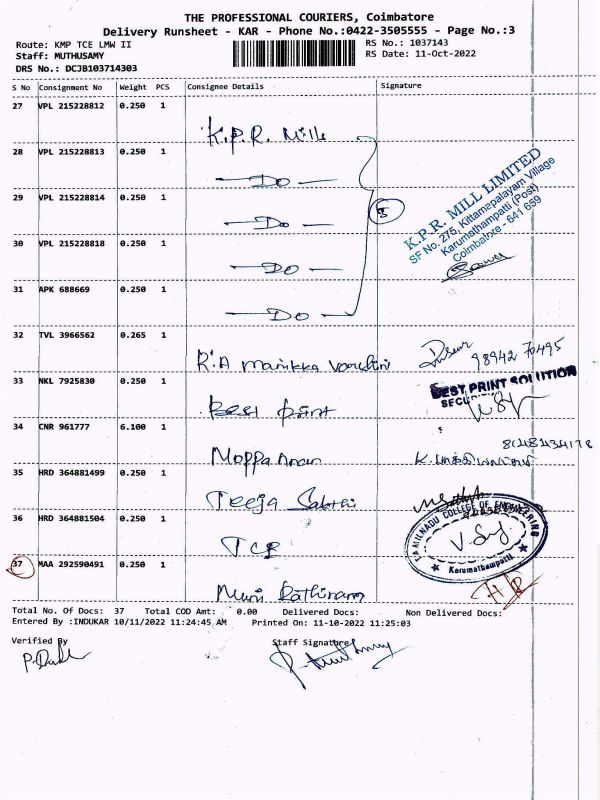 THE PROFESSIONAL COURIERS, Coimbatore
Delivery Runsheet - KAR - Phone No.:0422-3505555 - Page No.:3
Route: KMP TCE LMW II
RS No.: 1037143
Staff: MUTHUSAMY
RS Date: 11-Oct-2022
DRS No.: DCJB103714303
S No Consignment No Weight PCS Consignee Details Signature
27 VPL 215228812 0.250 1 K.P.R. Mills
28 VPL 215228813 0.250 1 — Do —
29 VPL 215228814 0.250 1 — Do —
5
K.P.R. MILL LIMITED
SF No. 275, Kittampalayam Village
Karumathampatti (Post)
Coimbatore - 641 659
30 VPL 215228818 0.250 1 — Do —
31 APK 688669 0.250 1 — Do —
32 TVL 3966562 0.265 1 R.A manikka
98942 70495
33 NKL 7925830 0.250 1 Best print
BEST PRINT SOLUTION
34 CNR 961777 6.100 1
35 HRD 364881499 0.250 1 Teeja
36 HRD 364881504 0.250 1 TCE
TAMILNADU COLLEGE OF ENGINEERING
Karumathampatti
37 MAA 292590491 0.250 1
Total No. Of Docs: 37 Total COD Amt: 0.00 Delivered Docs: Non Delivered Docs:
Entered By :INDUKAR 10/11/2022 11:24:45 AM Printed On: 11-10-2022 11:25:03
Verified By Staff Signature